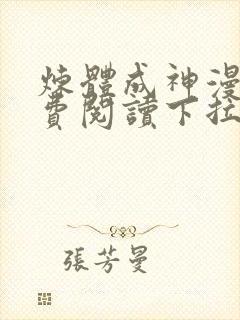 煉體成神漫
費閱讀下拉
張芳曼